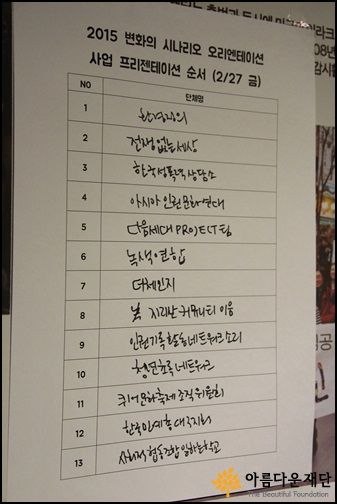 2015 변화의 시나리오 오리엔테이션
사업 프리젠테이션 순서 (2/27 금)
NO 단체명
1 환경정의
2 전쟁없는세상
3 한국성폭력상담소
4 아시아인권문화연대
5 다음세대 PROJECT팀
6 녹색연합
7 더체인지
8 지리산 커뮤니티 이음
9 인권기록활동네트워크 소리
10 청년초록네트워크
11 퀴어문화축제 조직위원회
12 한국민예총 대구지회
13 사회적협동조합 일하는학교
아름다운재단
The Beautiful Foundation